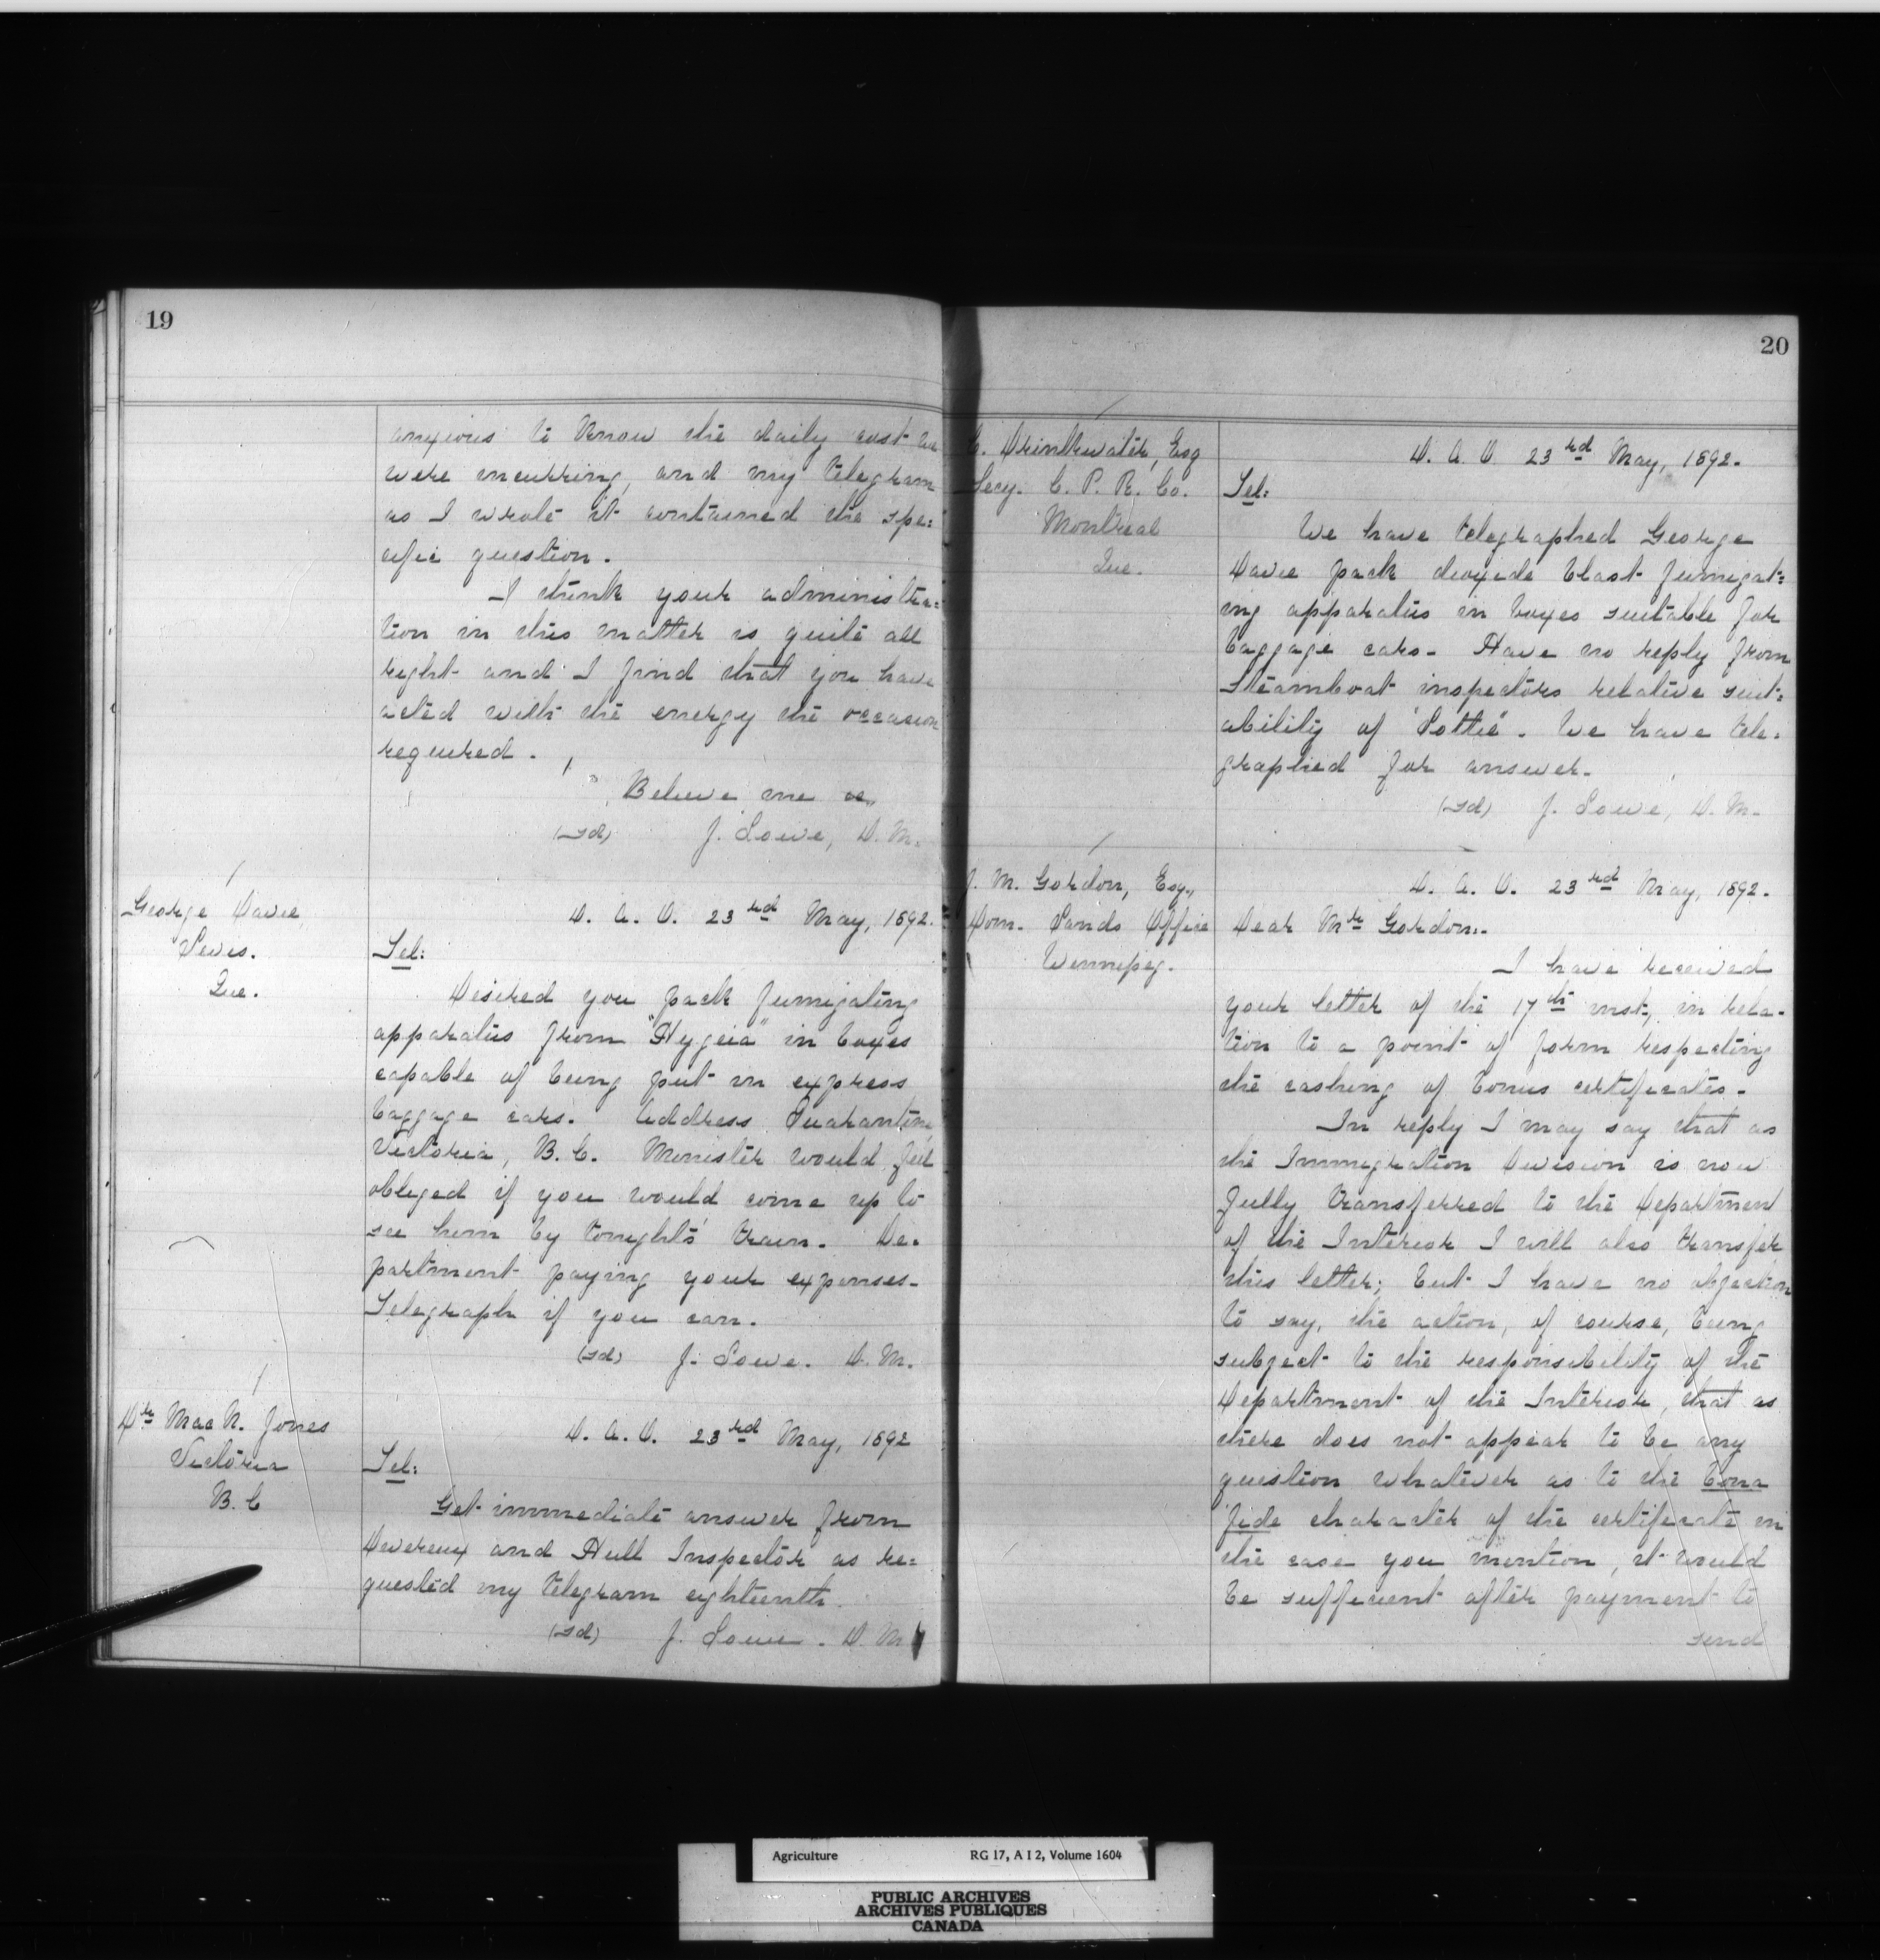 19
anxious to know the daily cost we
were incurring, and my telegram
as I wrote it contained the spe=
cific question.
I think your administra=
tion in this matter is quite all
right and I find that you have
acted with the energy the occasion
required.
Believe me &c
(sd) J. Lowe, D. M.
George Davie
Levis.
Que.
D. A. O. 23rd May, 1892.
Tel:
Desired you pack fumigating
apparatus from "Hygeia" in boxes
capable of being put in express
baggage cars. Address Quarantine
Victoria, B. C. Minister would feel
obliged if you would come up to
see him by tonight's train. De=
partment paying your expenses.
Telegraph if you can.
(sd) J. Lowe. D. M.
Dr Mac N. Jones
Victoria
B. C
D. A. O. 23rd May, 1892
Tel:
Get immediate answer from
Devereux and Hull Inspector as re=
quested my telegram eighteenth.
(sd) J. Lowe. D. M
20
C. Drinkwater, Esq
Secy. C. P. R. Co.
Montreal
Que.
D. A. O 23rd May, 1892.
Tel:
We have telegraphed George
Davie pack dioxide blast fumigat=
ing apparatus in boxes suitable for
baggage cars. Have no reply from
steamboat inspectors relative suit=
ability of "Lottie". We have tele=
graphed for answer.
(sd) J. Lowe, D. M.
J. M. Gordon, Esq.,
Dom. Lands Office
Winnipeg.
D. A. O. 23rd May, 1892.
Dear Mr Gordon:-
I have received
your letter of the 17th inst., in rela-
tion to a point of form respecting
the cashing of bonus certificates.
In reply I may say that as
the Immigration Division is now
fully transferred to the Departmen
of the Interior I will also transfer
this letter; but I have no objection
to say, the action, of course, being
subject to the responsibility of the
Department of the Interior, that as
there does not appear to be any
question whatever as to the bona
fide character of the certificate in
the case you mention, it would
be sufficient after payment to
send
Agriculture RG 17, A I 2, Volume 1604
PUBLIC ARCHIVES
ARCHIVES PUBLIQUES
CANADA